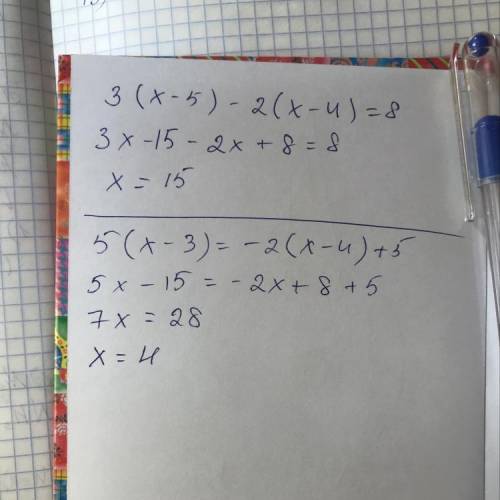 3(x-5)-2(x-4)=8
3x-15-2x+8=8
x=15
5(x-3)=-2(x-4)+5
5x-15=-2x+8+5
7x=28
x=4